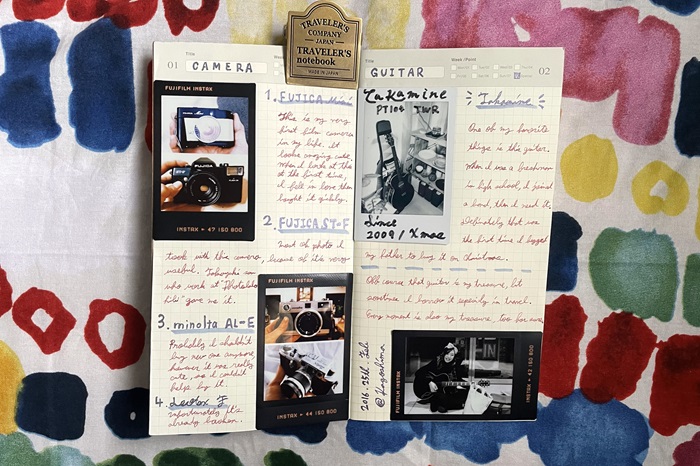 TRAVELER'S
COMPANY
JAPAN
TRAVELER'S
notebook
MADE IN JAPAN
Title
01 CAMERA
FUJIFILM INSTAX
INSTAX • 47 ISO 800
1. FUJICA Mini
This is my very
first film camera
in my life. It
looks amazing cute.
When I looked at this
at the first time,
I fell in love then
bought it quickly.
2. FUJICA ST-F
Most of photo I
took with this camera, because of it's very
useful.
who work at "Photolabo
hibi" gave me it.
3. minolta AL-E
Probably I shouldn't
buy new one anymore,
however it was really
cute, so I couldn't
help by it.
4.
unfortunately it's
already broken.
FUJIFILM INSTAX
INSTAX • 44 ISO 800
Title
Week / Note
GUITAR
02
Takamine
PT106 TWR
Since
2009 / Xmas
Takamine
One of my favorite
things is this guitar.
When I was a freshman
in high school, I joined
a band, then I need it,
definitely that was
the first time I begged
my father to buy it on Christmas.
Of course that guitar is my treasure, but
sometimes I borrow it especially in travel.
Every moment is also my treasure, too for me.
2016.25th.Feb
@ Kagoshima
FUJIFILM INSTAX
INSTAX • ISO 800